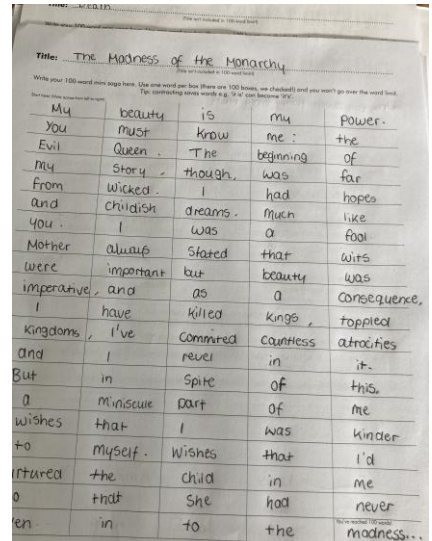 Title: The Madness of the Monarchy
(Title isn't included in 100-word limit)
Write your 100-word mini saga here. Use one word per box (there are 100 boxes, we checked!) and you won't go over the word limit.
Tip: contracting saves words e.g. 'it is' can become 'it's'.
My beauty is my power.
You must know me : the
Evil Queen. The beginning of
my story, though, was far
from wicked. I had hopes
and childish dreams. Much like
you. I was a fool.
Mother always stated that wits
were important but beauty was
imperative, and as a consequence,
I have killed kings, toppled
kingdoms, I've commited countless atrocities
and I revel in it.
But in spite of this,
a miniscule part of me
wishes that I was kinder
to myself. Wishes that I'd
rtured the child in me
o that she had never
en in to the madness...
You've reached 100 words!